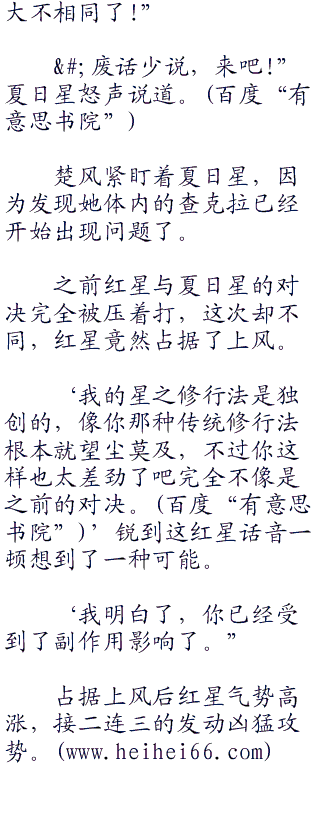 大不相同了!”
&#; 废话少说，来吧!”
夏日星怒声说道。(百度“有
意思书院”)
楚风紧盯着夏日星，因
为发现她体内的查克拉已经
开始出现问题了。
之前红星与夏日星的对
决完全被压着打，这次却不
同，红星竟然占据了上风。
‘我的星之修行法是独
创的，像你那种传统修行法
根本就望尘莫及，不过你这
样也太差劲了吧完全不像是
之前的对决。(百度“有意思
书院”)’锐到这红星话音一
顿想到了一种可能。
‘我明白了，你已经受
到了副作用影响了。”
占据上风后红星气势高
涨，接二连三的发动凶猛攻
势。(www.heihei66.com)